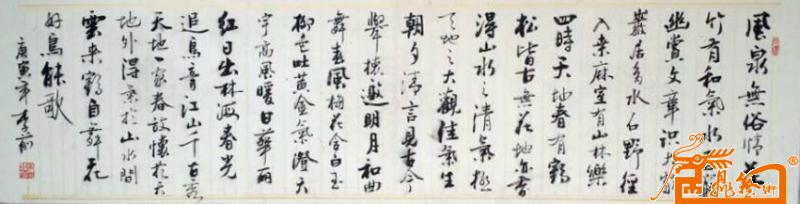 風泉無俗情花
竹有和氣水石
幽賞文章識
叢居多水石野徑
入桑麻室有山林樂
四時天地春有鶴
松皆古無花地亦香
得山水之清氣極
天地之大觀佳氣生
朝夕清言見古今
舉邀明月和曲
舞春風梅花含白玉
柳色吐黃金氣澄天
宇高風暖日華麗
紅日出林海春光
追鳥音江山千古秀
天地一家春放懷於天
地外得景於山水間
雲來鶴自舞花
好鳥能歌
庚寅年李前